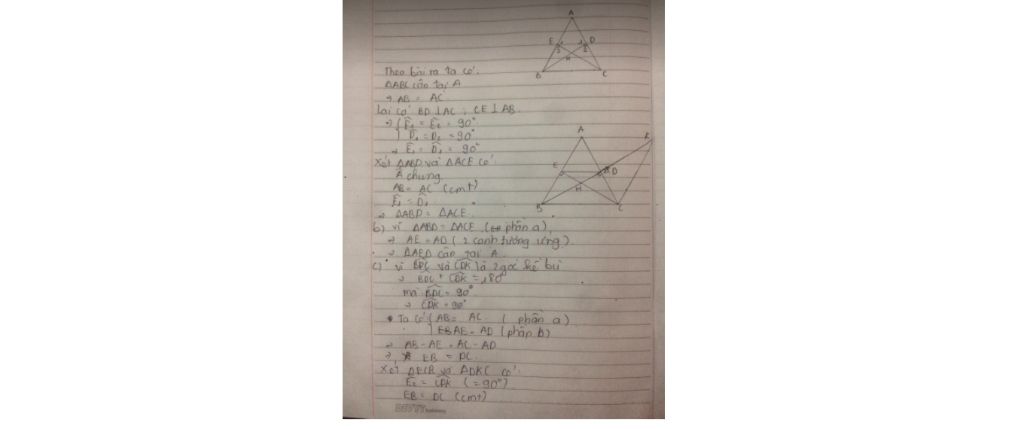 A
E
D
H
B
C
Theo bài ra ta có:
ΔABC cân tại A
→ AB = AC
Lại có BD ⊥ AC ; CE ⊥ AB
→ { Ê₁ = Ê₂ = 90°
D̂₁ = D̂₂ = 90°
→ Ê₁ = D̂₁ = 90°
Xét ΔABD và ΔACE có:
Â chung
AB = AC (cmt)
Ê₁ = D̂₁
→ ΔABD = ΔACE
A
K
E
D
H
B
C
b) Vì ΔABD = ΔACE (phần a)
→ AE = AD (2 cạnh tương ứng)
→ ΔAED cân tại A
c) Vì BDC và CDK là 2 góc kề bù
→ BDC + CDK = 180°
mà BDC = 90°
→ CDK = 90°
Ta có { AB = AC (phần a)
AE = AD (phần b)
→ AB - AE = AC - AD
→ EB = DC
Xét ΔECB và ΔDKC có:
Ê₂ = CDK (= 90°)
EB = DC (cmt)